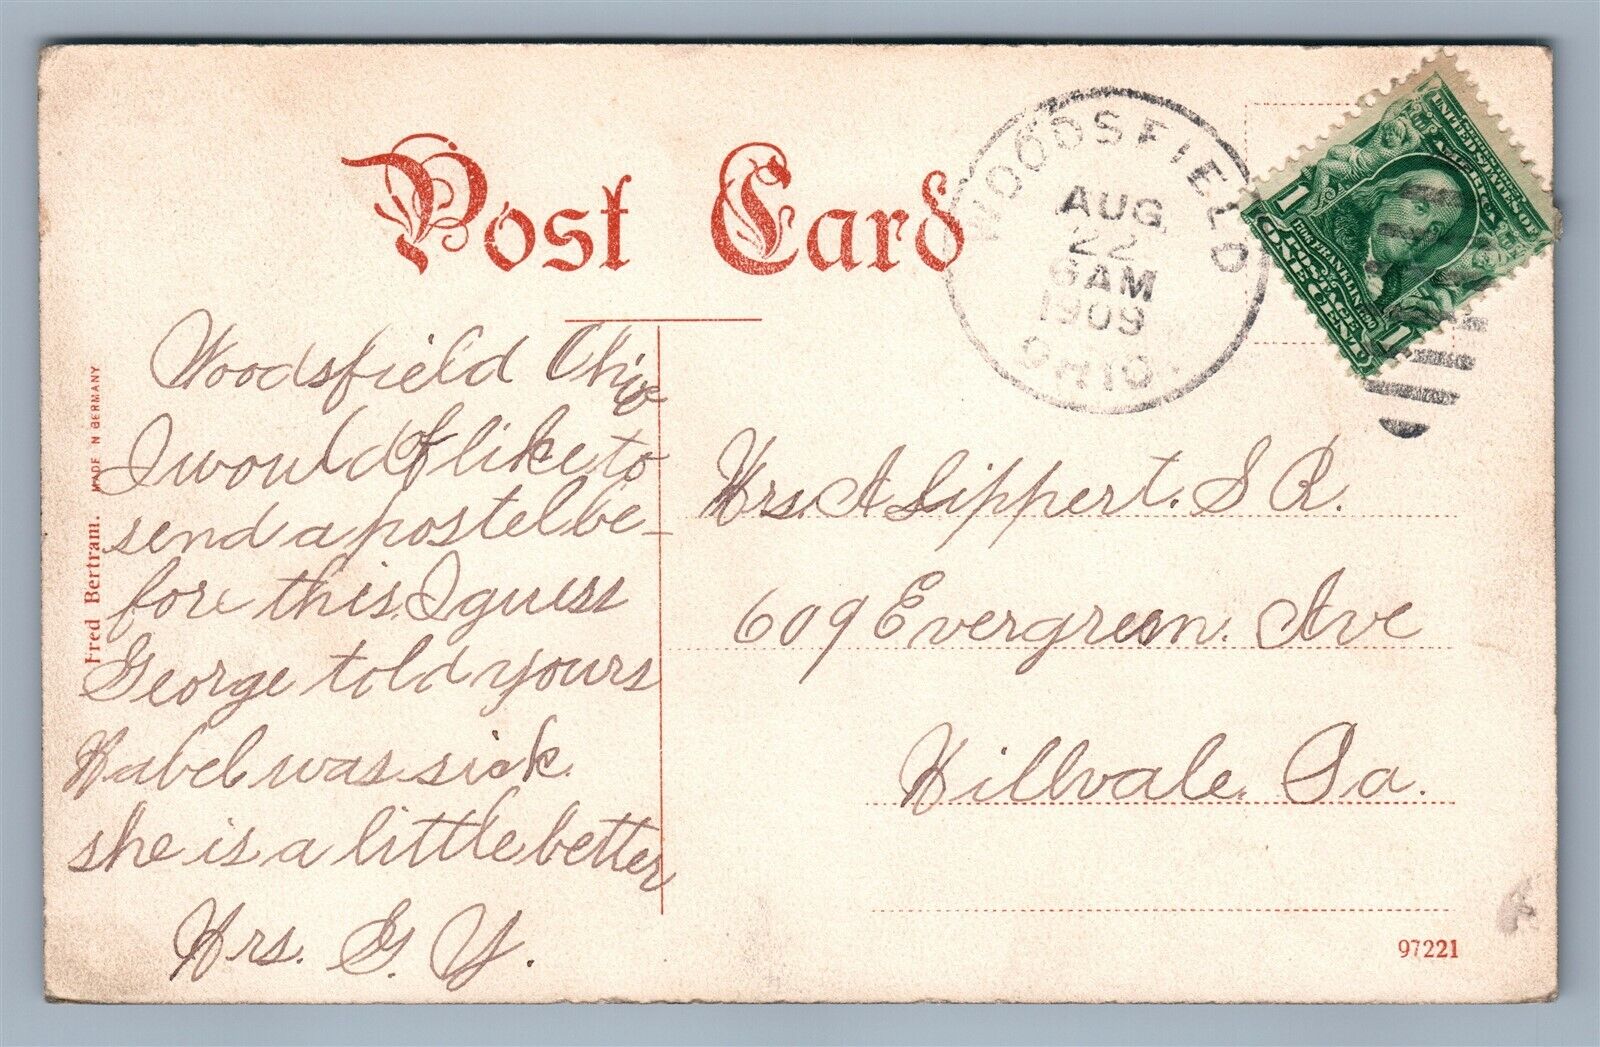 Post Card
WOODSFIELD
AUG
22
6AM
1909
OHIO.
UNITED STATES OF
AMERICA
1706 FRANKLIN 1790
POSTAGE
ONE CENT
1 1
Fred Bertram. MADE IN GERMANY
Woodsfield Ohio
I would of like to
send a postel be-
fore this. I guess
George told yours
Mabel was sick
she is a little better
Mrs. G. Y.
Mrs. A Lippert. S R.
609 Evergreen. Ave
Millvale. Pa.
97221